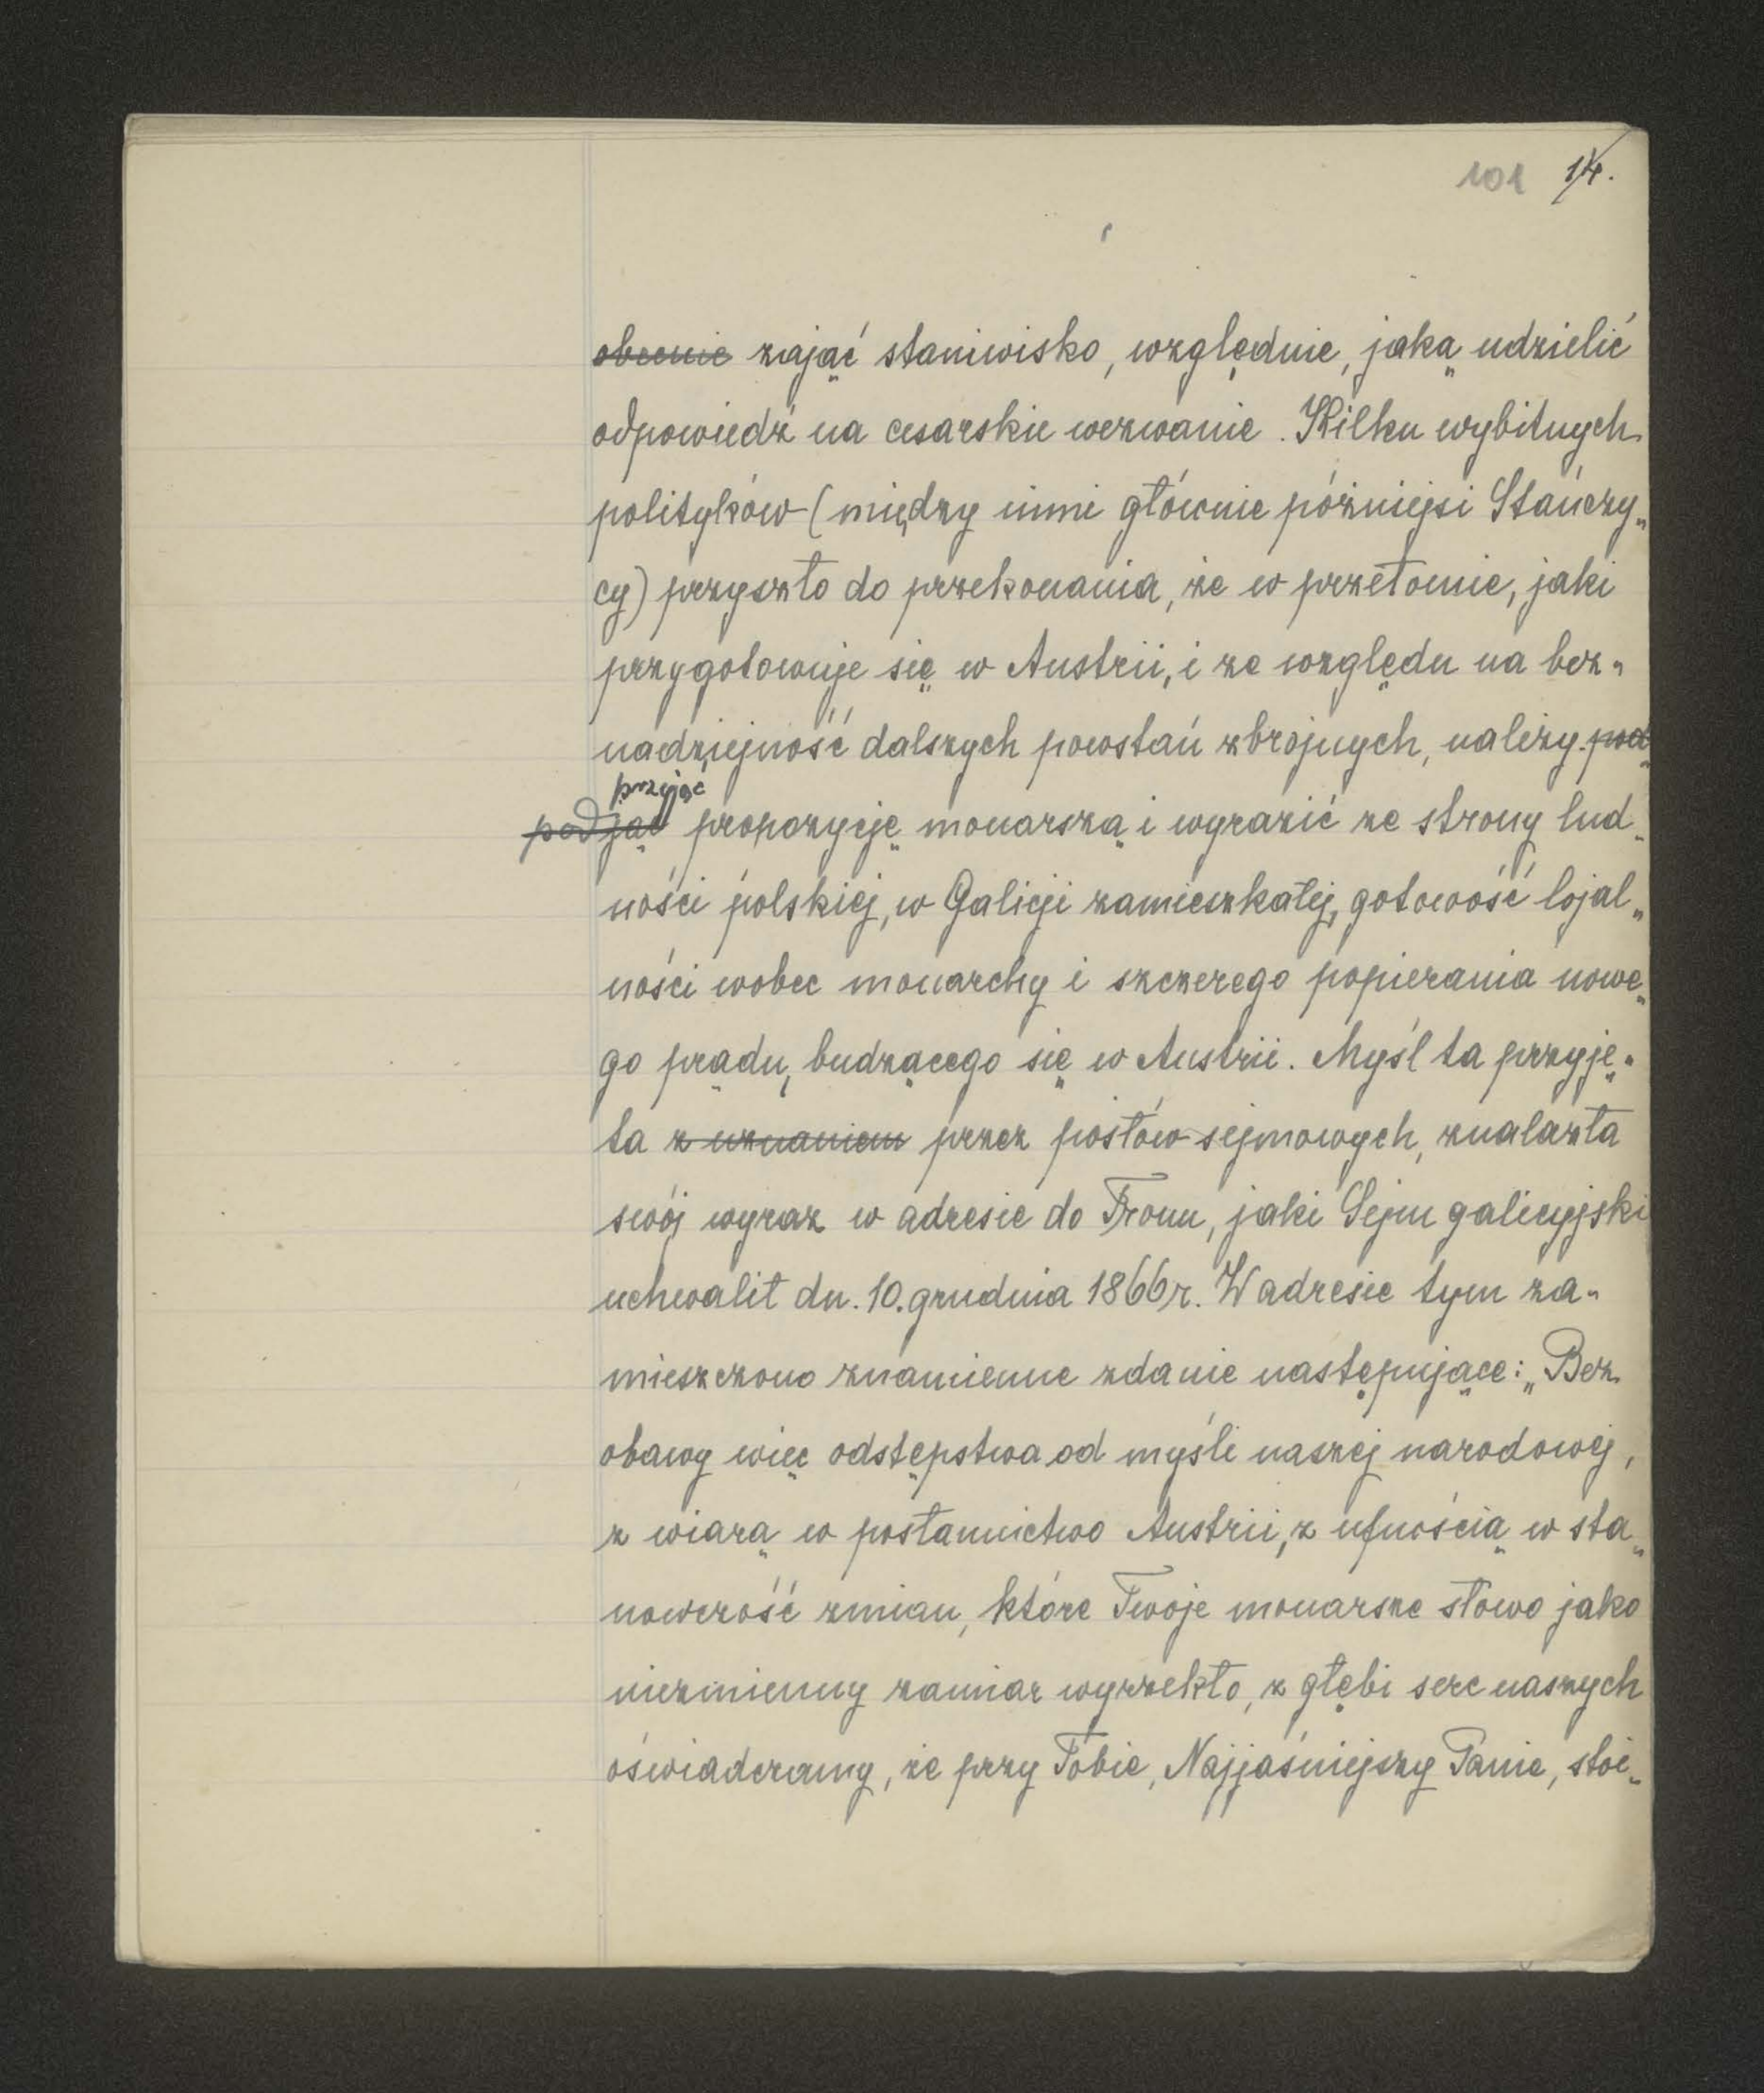 101 14.
obecnie zająć staniwisko, względnie, jaką udzielić
odpowiedź na cesarskie wezwanie. Kilku wybitnych
polityków (między inni głównie późniejsi Stańczy„
cy) przyszło do przekonania, że w przełomie, jaki
przygotowuje się w Austrii, i ze względu na bez„
nadziejność dalszych powstań zbrojnych, należy pod
przyjąć
podjąć propozycję monarszą i wyrazić ze strony lud„
ności polskiej, w Galicji zamieszkałej, gotowość lojal„
ności wobec monarchy i szczerego popierania nowe„
go prądu, budzącego się w Austrii. Myśl ta przyję„
ta z uznaniem przez posłów sejmowych, znalazła
swój wyraz w adresie do Tronu, jaki Sejm galicyjski
uchwalił dn. 10. grudnia 1866 r. W adresie tym za„
mieszczono znamienne zdanie następujące: „Bez
obawy więc odstępstwa od myśli naszej narodowej,
z wiarą w posłannictwo Austrii, z ufnością w sta„
nowczość zmian, które Twoje monarsze słowo jako
niezmienny zamiar wyrzekło, z głębi serc naszych
oświadczamy, że przy Tobie, Najjaśniejszy Panie, stoi„